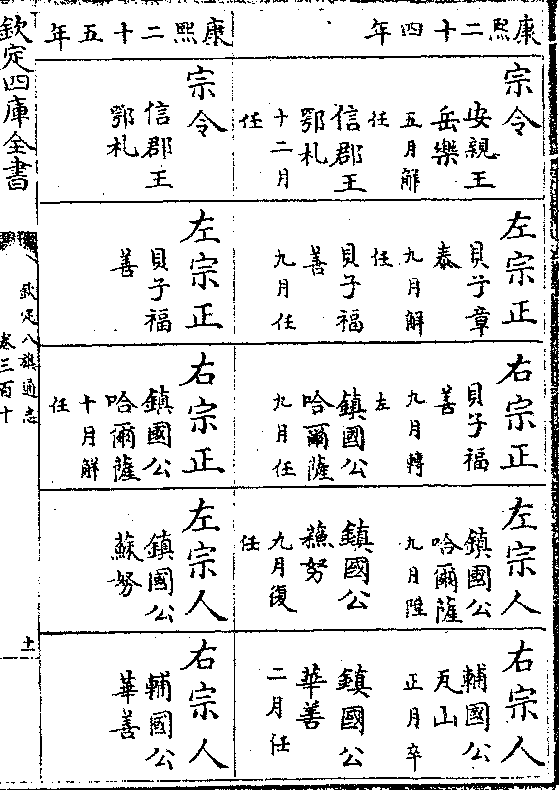 康熙二十四年
宗令
安親王
岳樂
五月解
任
信郡王
鄂札
十二月
任
左宗正
貝子章
泰
九月解
任
貝子福
善
九月任
右宗正
貝子福
善
九月轉
左
鎮國公
哈爾薩
九月任
左宗人
鎮國公
哈爾薩
九月陞
鎮國公
蘇努
九月復
任
右宗人
輔國公
瓦山
正月卒
鎮國公
華善
二月任
康熙二十五年
宗令
信郡王
鄂札
左宗正
貝子福
善
右宗正
鎮國公
哈爾薩
十月解
任
左宗人
鎮國公
蘇努
右宗人
輔國公
華善
欽定四庫全書
欽定八旗通志
卷三百十
十一